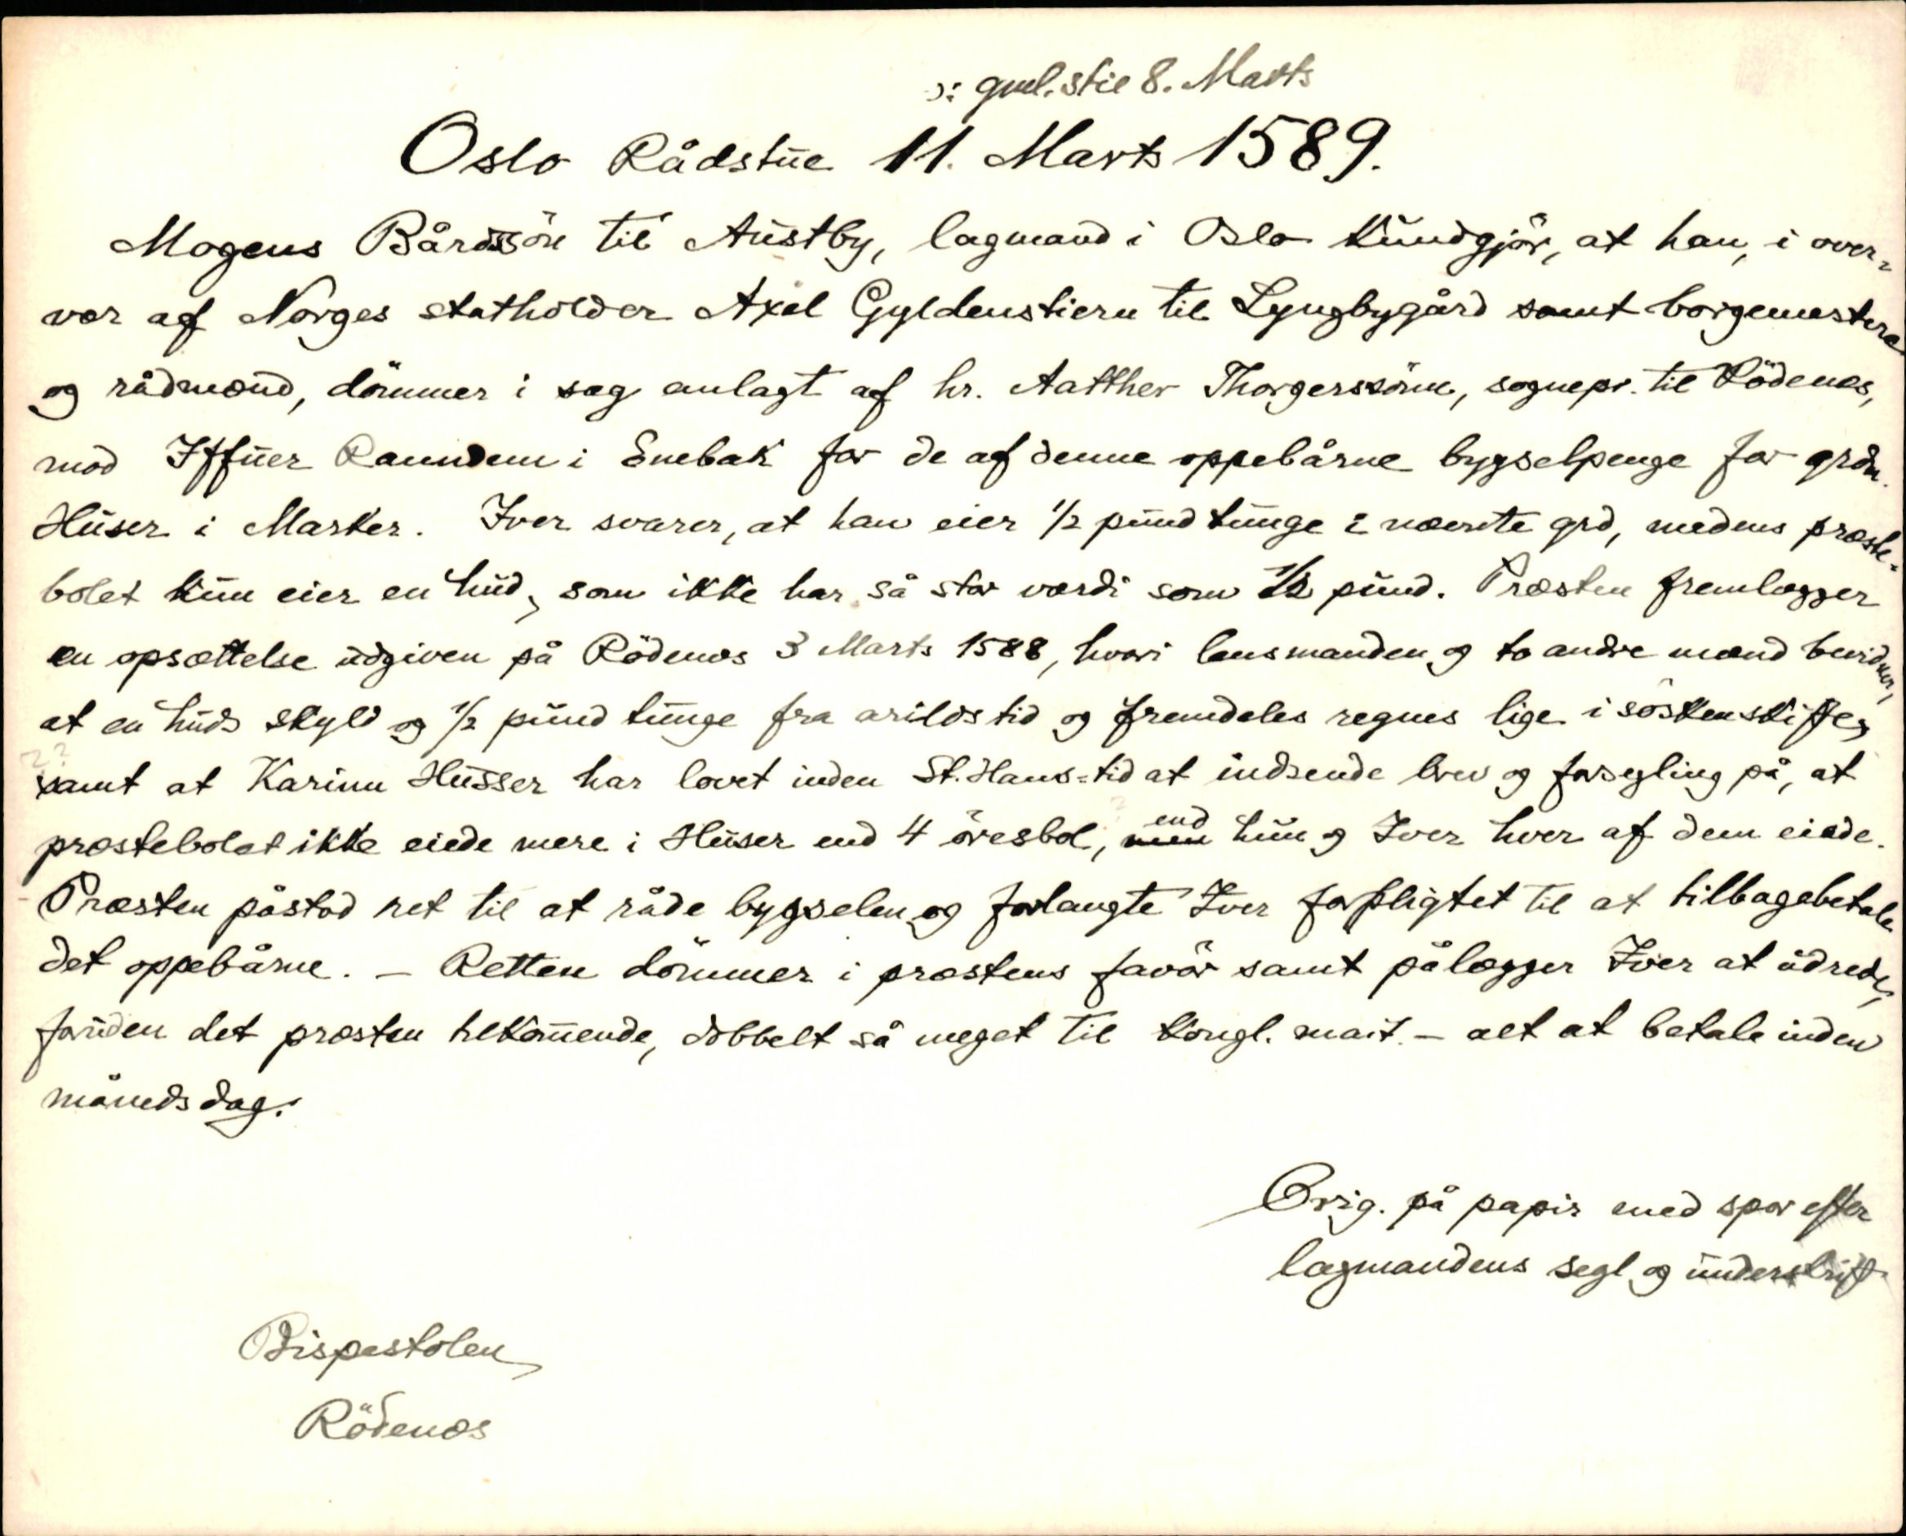 ɔ: gml. stil 8. Marts
Oslo Rådstue 11. Marts 1589.
Mogens Bårdssön til Austby, lagmand i Oslo kundgjör, at han, i over-
vær af Norges statholder Axel Gyldenstiern til Lyngbygård samt borgemestere
og rådmænd, dömmer i sag anlagt af hr. Aatther Thorgerssönn, sognepr. til Rödenes,
mod Iffuer Ranndem i Enebak for de af denne oppebårne bygselpenge for grdn.
Huser i Marker. Iver svarer, at han eier 1/2 pund tunge i nævnte grd, medens præste-
bolet kun eier en hud, som ikke har så stor værdi som 1/2 pund. Præsten fremlægger
en opsættelse udgiven på Rödenæs 3 Marts 1588, hvori lensmanden og to andre mænd bevidner,
at en huds skyld og 1/2 pund tunge fra arilds tid og fremdeles regnes lige i söskenskifte,
samt at Karinn Husser har lovet inden St. Hans-tid at indsende brev og forsegling på, at
præstebolet ikke eiede mere i Huser end 4 öresbol, end hun og Iver hver af dem eiede.
Præsten påstod ret til at råde bygselen og forlangte Iver forpligtet til at tilbagebetale
det oppebårne. – Retten dömmer i præstens favör samt pålægger Iver at udrede,
foruden det præsten tilkom̄ende, dobbelt så meget til kongl. mait. – alt at betale inden
måneds dag.
Orig. på papir med spor efter
lagmandens segl og underskrift
Bispestolen
Rödenæs